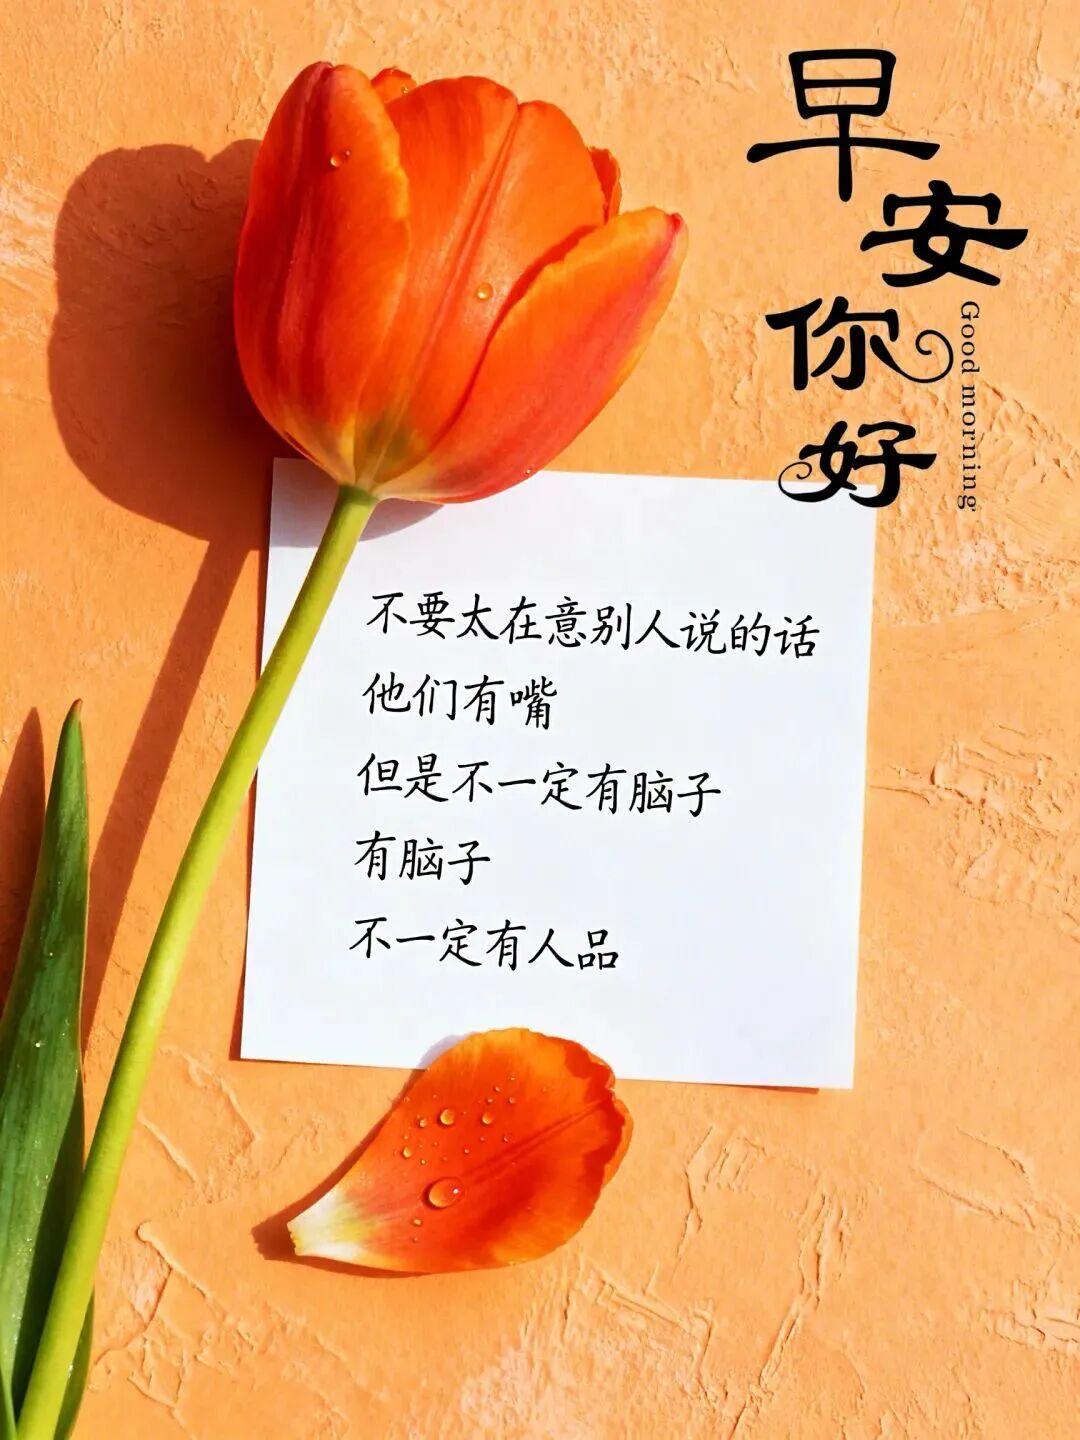 早安你好
Good morning
不要太在意别人说的话
他们有嘴
但是不一定有脑子
有脑子
不一定有人品